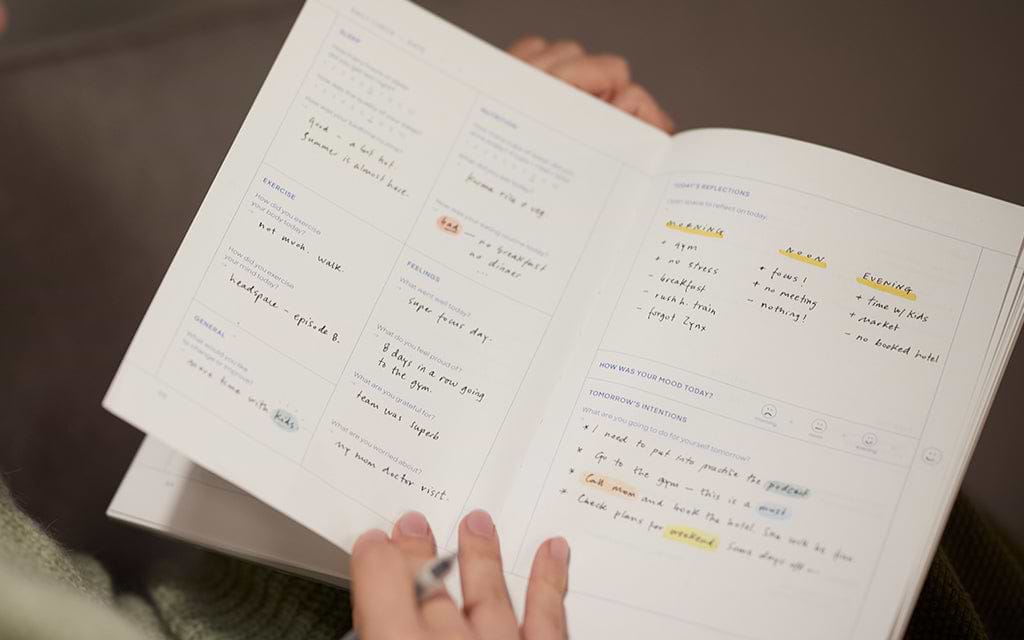 SLEEP
How was the quality of your sleep?
Good - a bit hot.
Summer is almost here.
EXERCISE
How did you exercise
your body today?
not much. walk.
How did you exercise
your mind today?
headspace - episode 8.
GENERAL
What would you like
to change or improve?
more time with kids
NUTRITION
How was your eating routine today?
bad - no breakfast
no dinner
...
FEELINGS
What went well today?
super focus day.
What do you feel proud of?
8 days in a row going
to the gym.
What are you grateful for?
team was superb
What are you worried about?
my mom doctor visit.
TODAY'S REFLECTIONS
Open space to reflect on today.
MORNING
+ gym
+ no stress
- breakfast
- rush h. train
- forgot Zynx
NOON
+ focus!
+ no meeting
- nothing!
EVENING
+ time w/ kids
+ market
- no booked hotel
HOW WAS YOUR MOOD TODAY?
morning
noon
evening
TOMORROW'S INTENTIONS
What are you going to do for yourself tomorrow?
* I need to put into practise the podcast
* Go to the gym - this is a must
* Call mom and book the hotel.
* Check plans for weekend. Some days off...